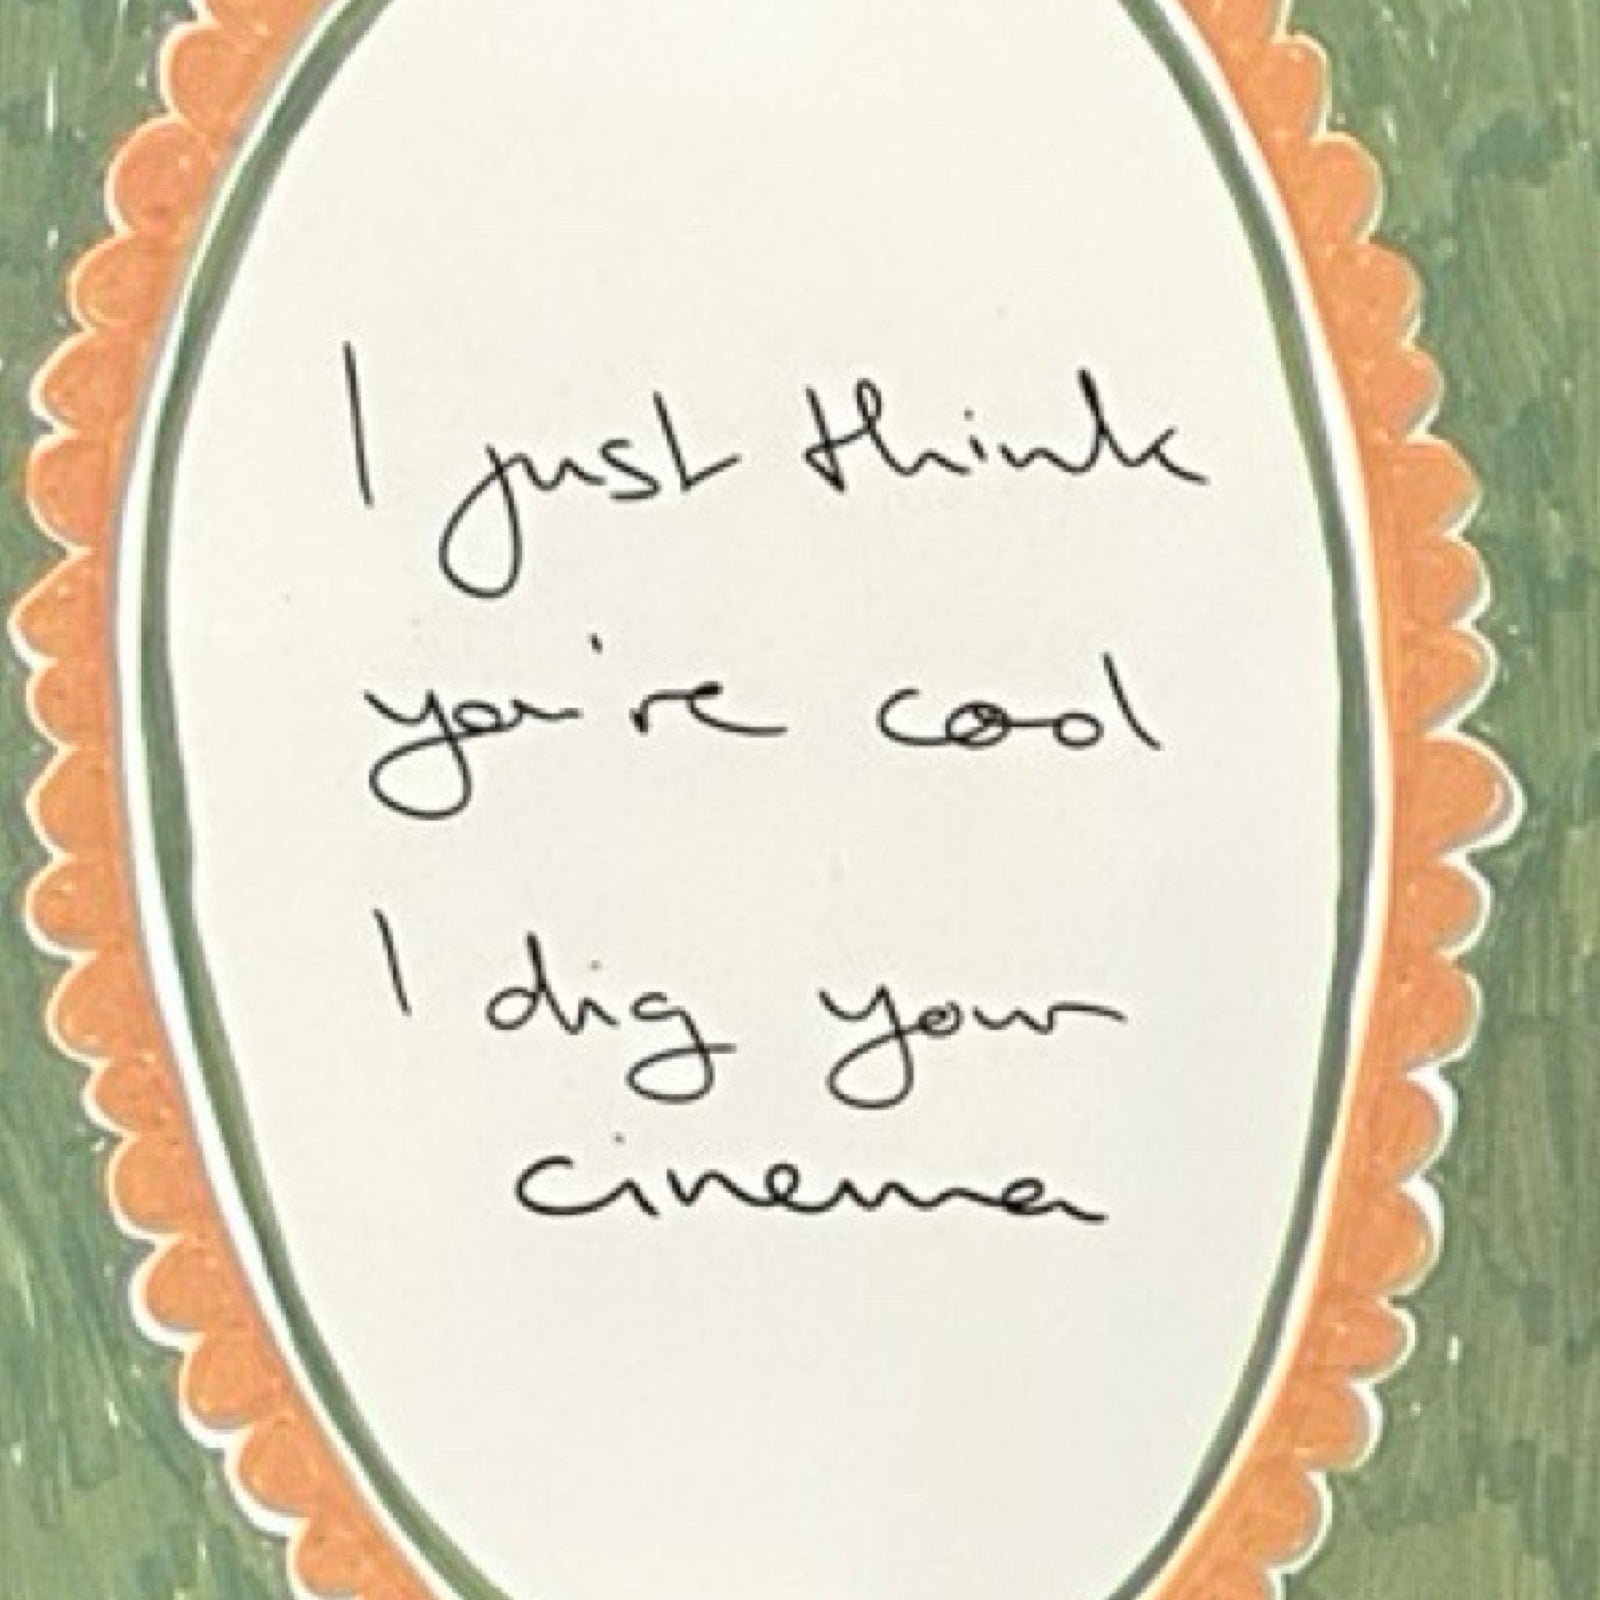 I just think
you're cool
I dig your
cinema